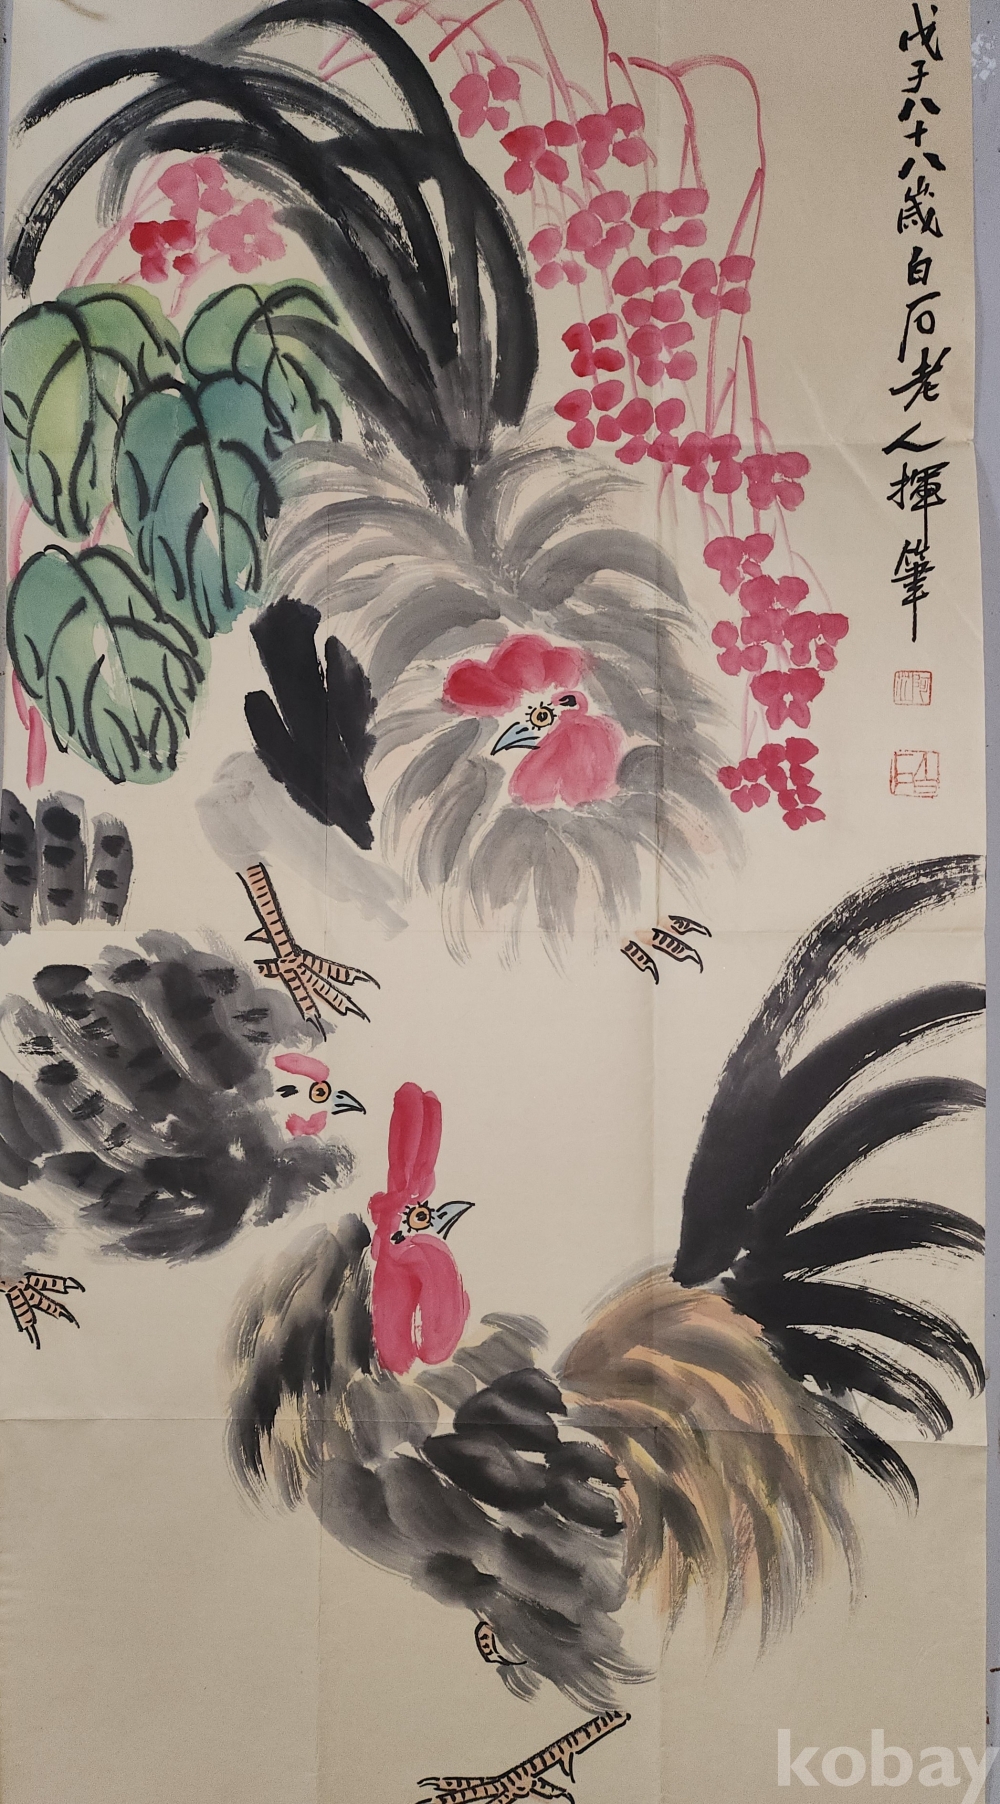 戊子八十八歲白石老人揮筆
kobay